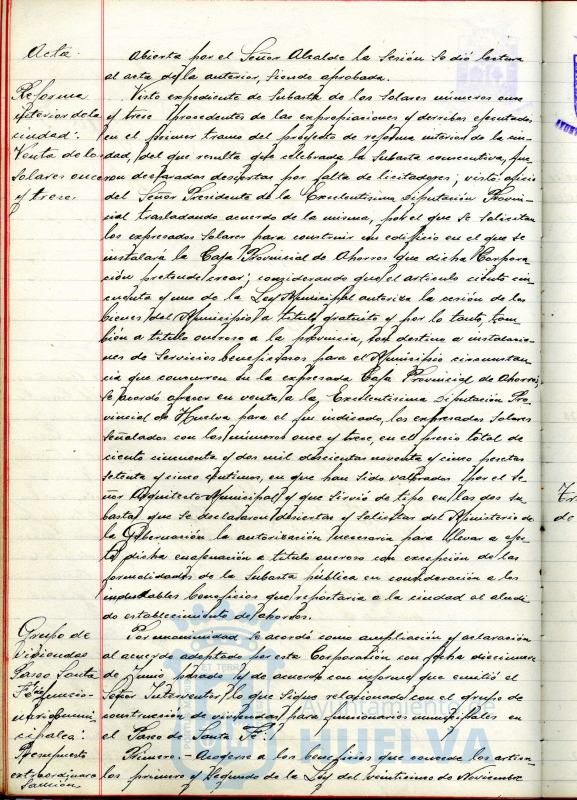 Acta:
Abierta por el Señor Alcalde la Sesión se dió lectura
al acta de la anterior, siendo aprobada.
Reforma
interior de la
ciudad:
Venta de los
Solares once
y trece.
Visto expediente de Subasta de los Solares números once
y trece procedentes de las expropiaciones y derribos efectuados
en el primer tramo del proyecto de reforma interior de la ciu-
dad, del que resulta que celebrada la subasta consecutiva, fue-
ron declaradas desiertas por falta de licitadores; visto oficio
del Señor Presidente de la Excelentísima Diputación Provin-
cial trasladando acuerdo de la misma, por el que se solicitan
los expresados solares para construir un edificio en el que se
instalará la Caja Provincial de Ahorros que dicha Corpora-
ción pretende crear; considerando que el artículo ciento cin-
cuenta y uno de la Ley Municipal autoriza la cesión de los
bienes del Municipio a título gratuito y por lo tanto, tam-
bién a título oneroso a la provincia, con destino a instalacio-
nes de Servicios beneficiosos para el Municipio circunstan-
cia que concurren en la expresada Caja Provincial de Ahorros,
se acordó ofrecer en venta a la Excelentísima Diputación Pro-
vincial de Huelva para el fin indicado, los expresados Solares
señalados con los números once y trece, en el precio total de
ciento cincuenta y dos mil doscientas noventa y cinco pesetas
setenta y cinco céntimos, en que han sido valorados por el Se-
ñor Arquitecto Municipal y que sirvió de tipo en las dos su-
bastas que se declararon desiertas y solicitar del Ministerio de
la Gobernación la autorización necesaria para llevar a efec-
to dicha enagenación a título oneroso con excepción de las
formalidades de la Subasta pública en consideración a los
indudables beneficios que reportaría a la ciudad el aludi-
do establecimiento de ahorros.
Grupo de
viviendas
Paseo Santa
Fé funcio-
narios muni-
cipales:
Presupuesto
extraordinario
Por unanimidad se acordó como ampliación y aclaración
al acuerdo adoptado por esta Corporación con fecha diecinueve
de Junio pasado y de acuerdo con informe que emitió el
Señor Interventor, lo que sigue relacionado con el grupo de
construcción de viviendas para funcionarios municipales en
el Paseo de Santa Fé:
Primero.- Acogerse a los beneficios que concede los artícu-
los primero y segundo de la Ley del veinticinco de Noviembre
Ayuntamiento de
HUELVA